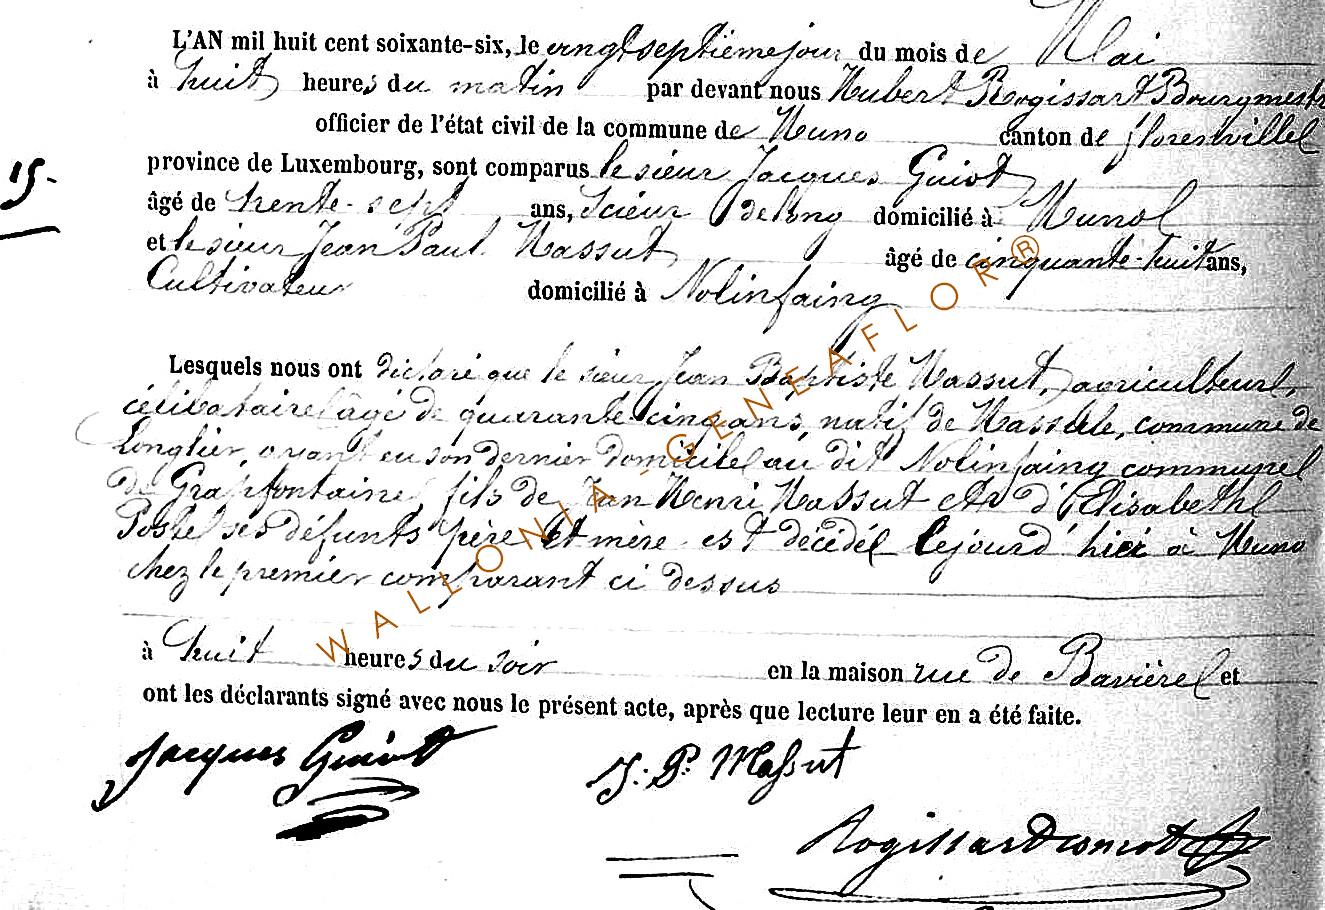 L'AN mil huit cent soixante-six, le vingt septième jour du mois de Mai
à huit heures du matin par devant nous Hubert Rogissart Bourgmestre
officier de l'état civil de la commune de Muno canton de florenville
15.
province de Luxembourg, sont comparus le sieur Jacques Guiot
âgé de trente-sept ans, Scieur de long domicilié à Muno
et le sieur Jean Paul Massut âgé de cinquante-huit ans,
Cultivateur domicilié à Nolinfaing
Lesquels nous ont déclaré que le sieur Jean Baptiste Massut, agriculteur,
célibataire âgé de quarante cinq ans, natif de Massule, commune de
Longlier, ayant eu son dernier domicile au dit Nolinfaing commune
de Grapfontaine, fils de Jean Henri Massut et d'Elisabeth
Postel ses défunts père et mère est décédé le jour d'hier à Muno
chez le premier comparant ci dessus
à huit heures du soir en la maison rue de Bavière et
ont les déclarants signé avec nous le présent acte, après que lecture leur en a été faite.
Jacques Guiot
J: P. Massut
Rogissart
WALLONIA-GENEAFLOR®